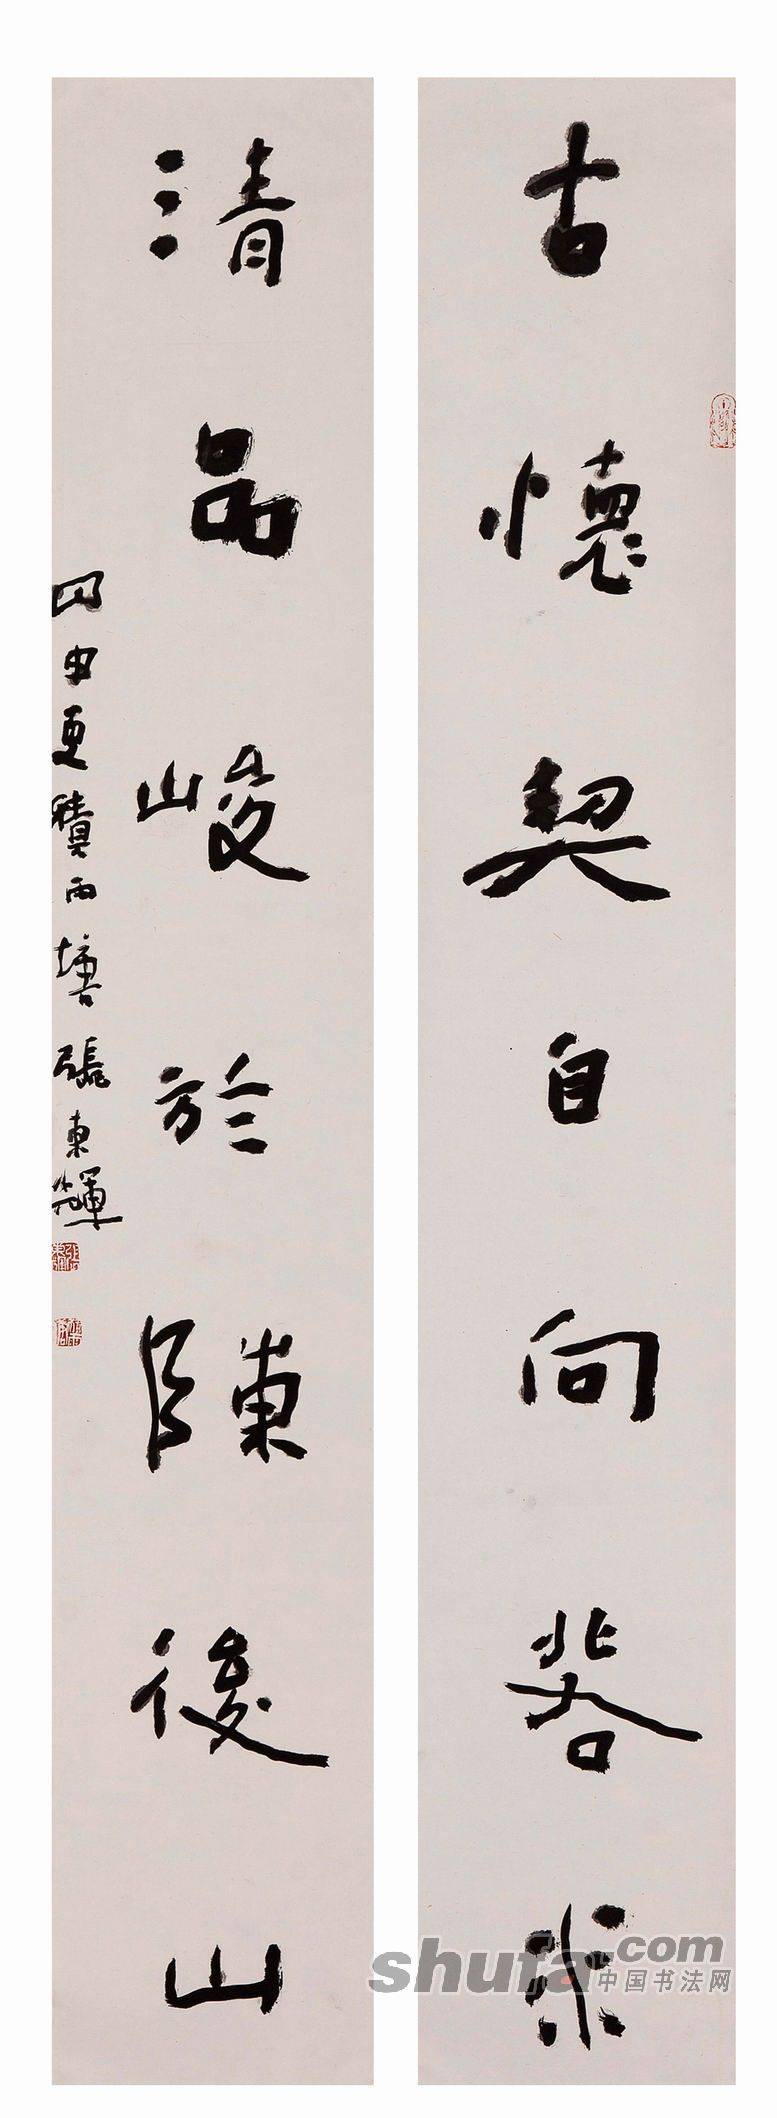 古懷契自向若水
清品峻於陳後山
丙申夏積雨墻張東輝
shufa.com
中国书法网